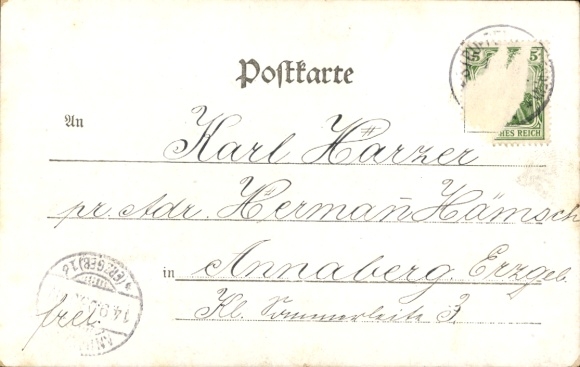 Postkarte
5 5
HES REICH
An
Karl Harzer
pr. Adr. Hermann Hämsch
in Annaberg. Erzgeb.
Kl. Sommerleite 3.
(ERZGEB.)
frei.